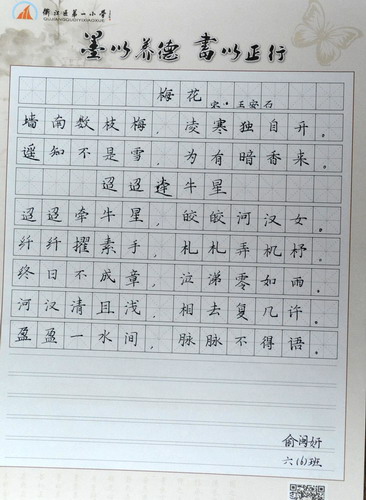 衢江区第一小学
墨以养德 书以正行
梅花
宋·王安石
墙南数枝梅，凌寒独自开。
遥知不是雪，为有暗香来。
迢迢牵牛星
迢迢牵牛星，皎皎河汉女。
纤纤擢素手，札札弄机杼。
终日不成章，泣涕零如雨。
河汉清且浅，相去复几许。
盈盈一水间，脉脉不得语。
俞闵妍
六(6)班